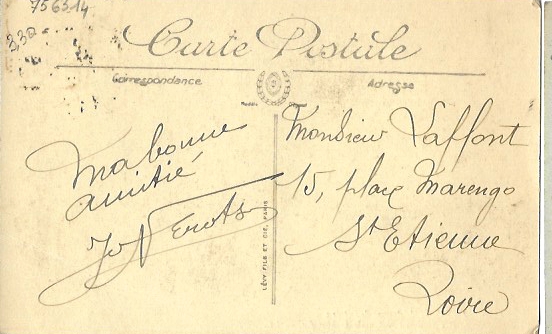 756514
3,30
Carte Postale
Correspondance
Adresse
Ma bonne
amitié
LÉVY FILS ET CIE, PARIS
Monsieur Laffont
15, place Marengo
St Etienne
Loire